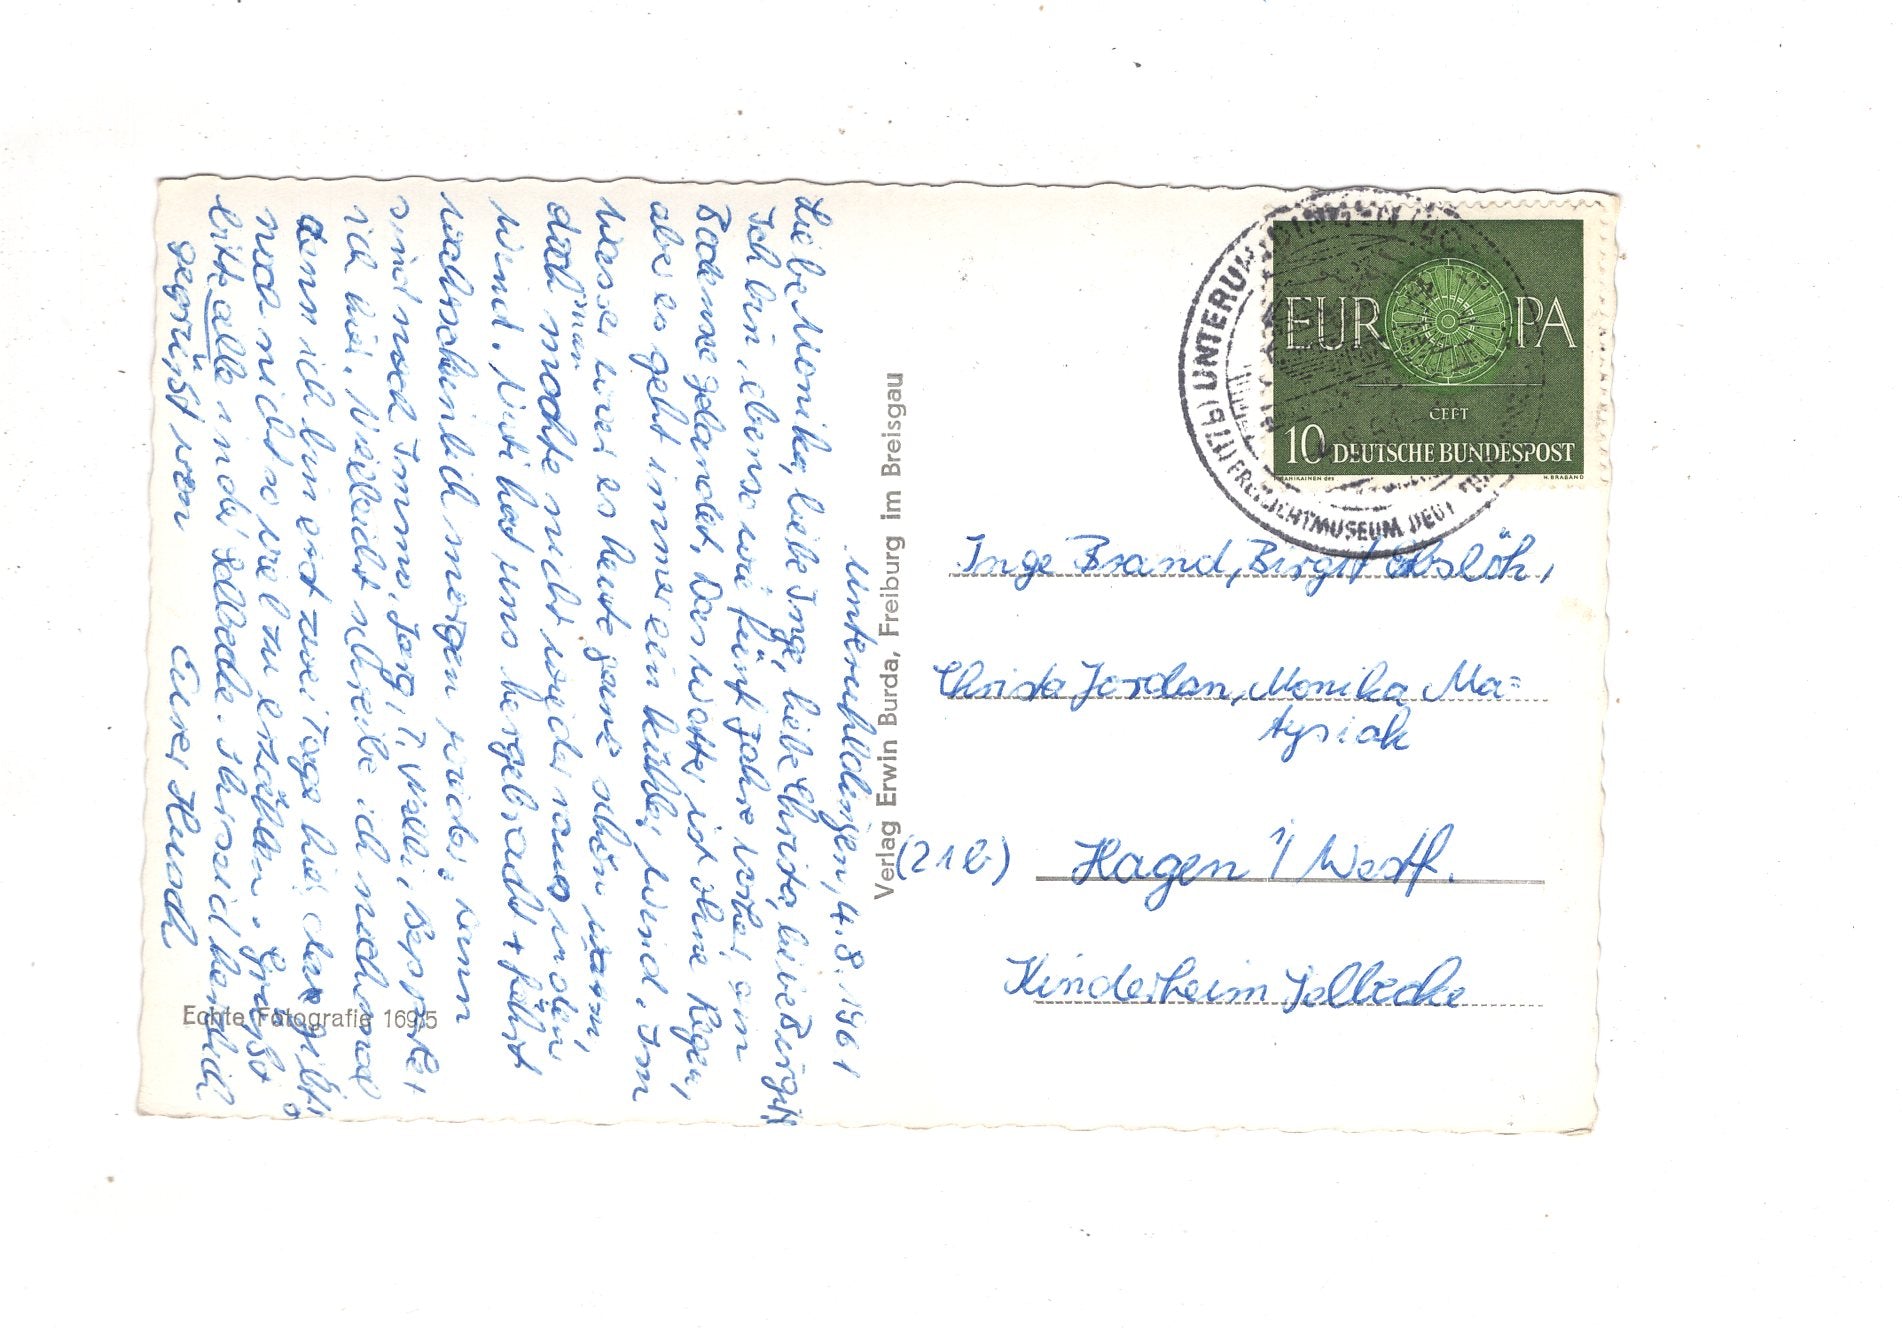 Unteruhldingen, 4.8.1961
Liebe Monika, liebe Inge, liebe Christa, liebe Birgit!
Ich bin, ebenso wie fünf Jahre vorher am
Bodensee gelandet. Das Wetter ist ohne Regen,
aber es geht immer ein kühler Wind. Im
Wasser war es heute ganz schön warm,
man
doch mochte nicht wieder raus in den
Wind. Vati hat uns hergebracht + fährt
wahrscheinlich morgen wieder, dann
sind noch Immo, Jörg, T. Nelli,
ich hier. Vielleicht schreibe ich nochmal
denn ich bin erst zwei Tage hier, da gibt's
noch nicht so viel zu erzählen. Grüßt
bitte alle in der Selbecke. Ihr seid herzlich
gegrüßt von
Eurer
Echte Fotografie 169/5
Verlag Erwin Burda, Freiburg im Breisgau
EUROPA
CEPT
10 DEUTSCHE BUNDESPOST
H. BRABAND
UNTERUHLDINGEN
FREILICHTMUSEUM DEUT
Inge Brand, Birgit
Christa Jordan, Monika Ma=
tysiak
(21b) Hagen i/ Westf.
Kinderheim Selbecke